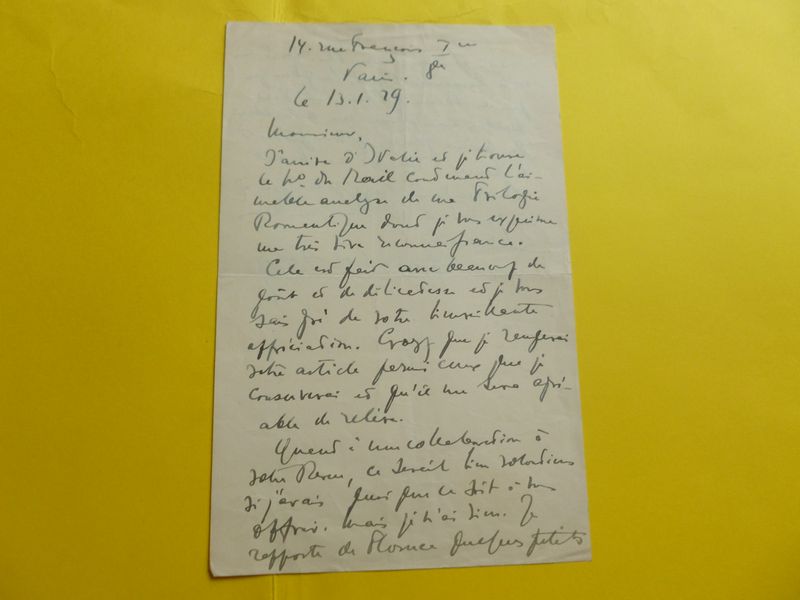 14. rue François Ier
Paris. 8e
le 13.1.29.
Monsieur,
J'arrive d'Italie et je trouve
le No du Mail contenant l'ai-
mable analyse de ma Trilogie
Romantique dont je vous exprime
ma très vive reconnaissance.
Cela est fait avec beaucoup de
goût et de délicatesse et je vous
sais gré de votre bienveillante
appréciation. Croyez que je rangerai
votre article parmi ceux que je
conserverai et qu'il me sera agré-
able de relire.
Quand à une collaboration à
votre Revue, ce serait bien volontiers
si j'avais quoi que ce soit à vous
offrir. Mais je n'ai rien. Je
rapporte de Florence quelques petits